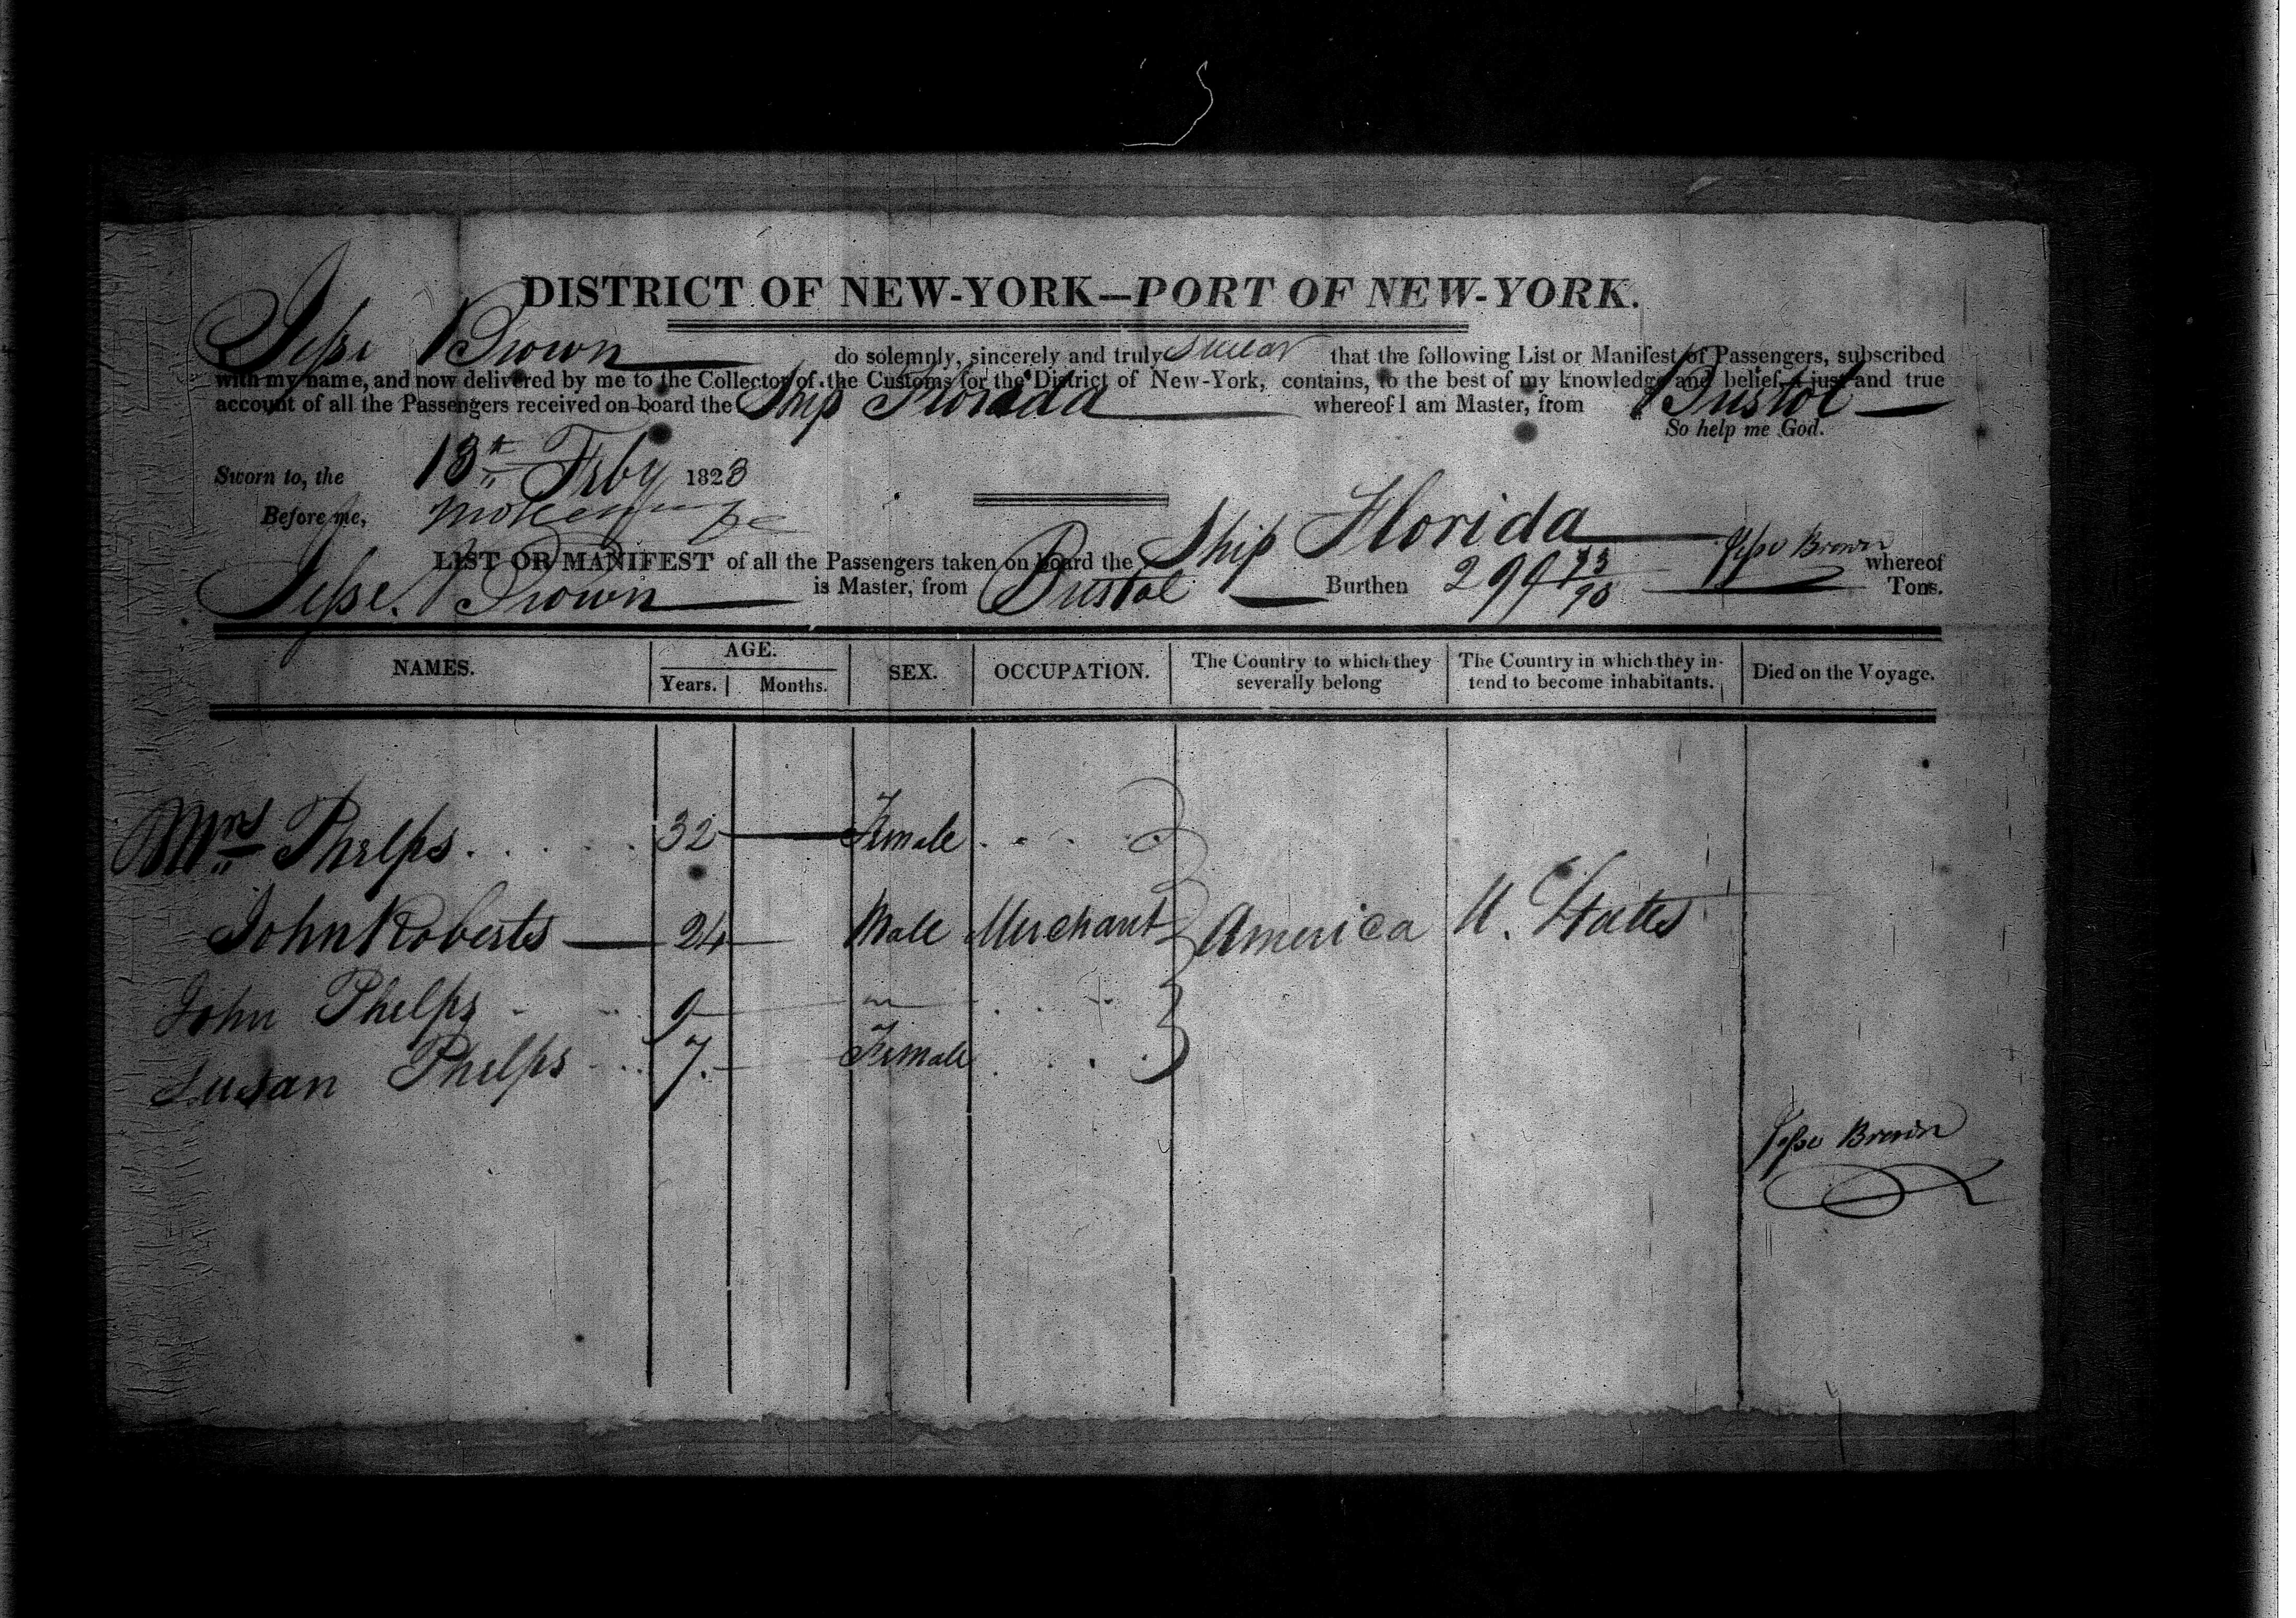 DISTRICT OF NEW-YORK—PORT OF NEW-YORK.
Jesse Brown do solemnly, sincerely and truly swear that the following List or Manifest of Passengers, subscribed
with my name, and now delivered by me to the Collector of the Customs for the District of New-York, contains, to the best of my knowledge and belief, a just and true
account of all the Passengers received on board the Ship Florida whereof I am Master, from Bristol
So help me God.
Sworn to, the 13th Feby 1823
Before me,
LIST OR MANIFEST of all the Passengers taken on board the Ship Florida Jesse Brown whereof
Jesse Brown is Master, from Bristol Burthen 299 73/95 Tons.
NAMES. AGE. Years. Months. SEX. OCCUPATION. The Country to which they severally belong The Country in which they intend to become inhabitants. Died on the Voyage.
Mrs Phelps 32 Female
John Roberts 24 Male Merchant America U. States
John Phelps 9 "
Susan Phelps 7. Female
Jesse Brown